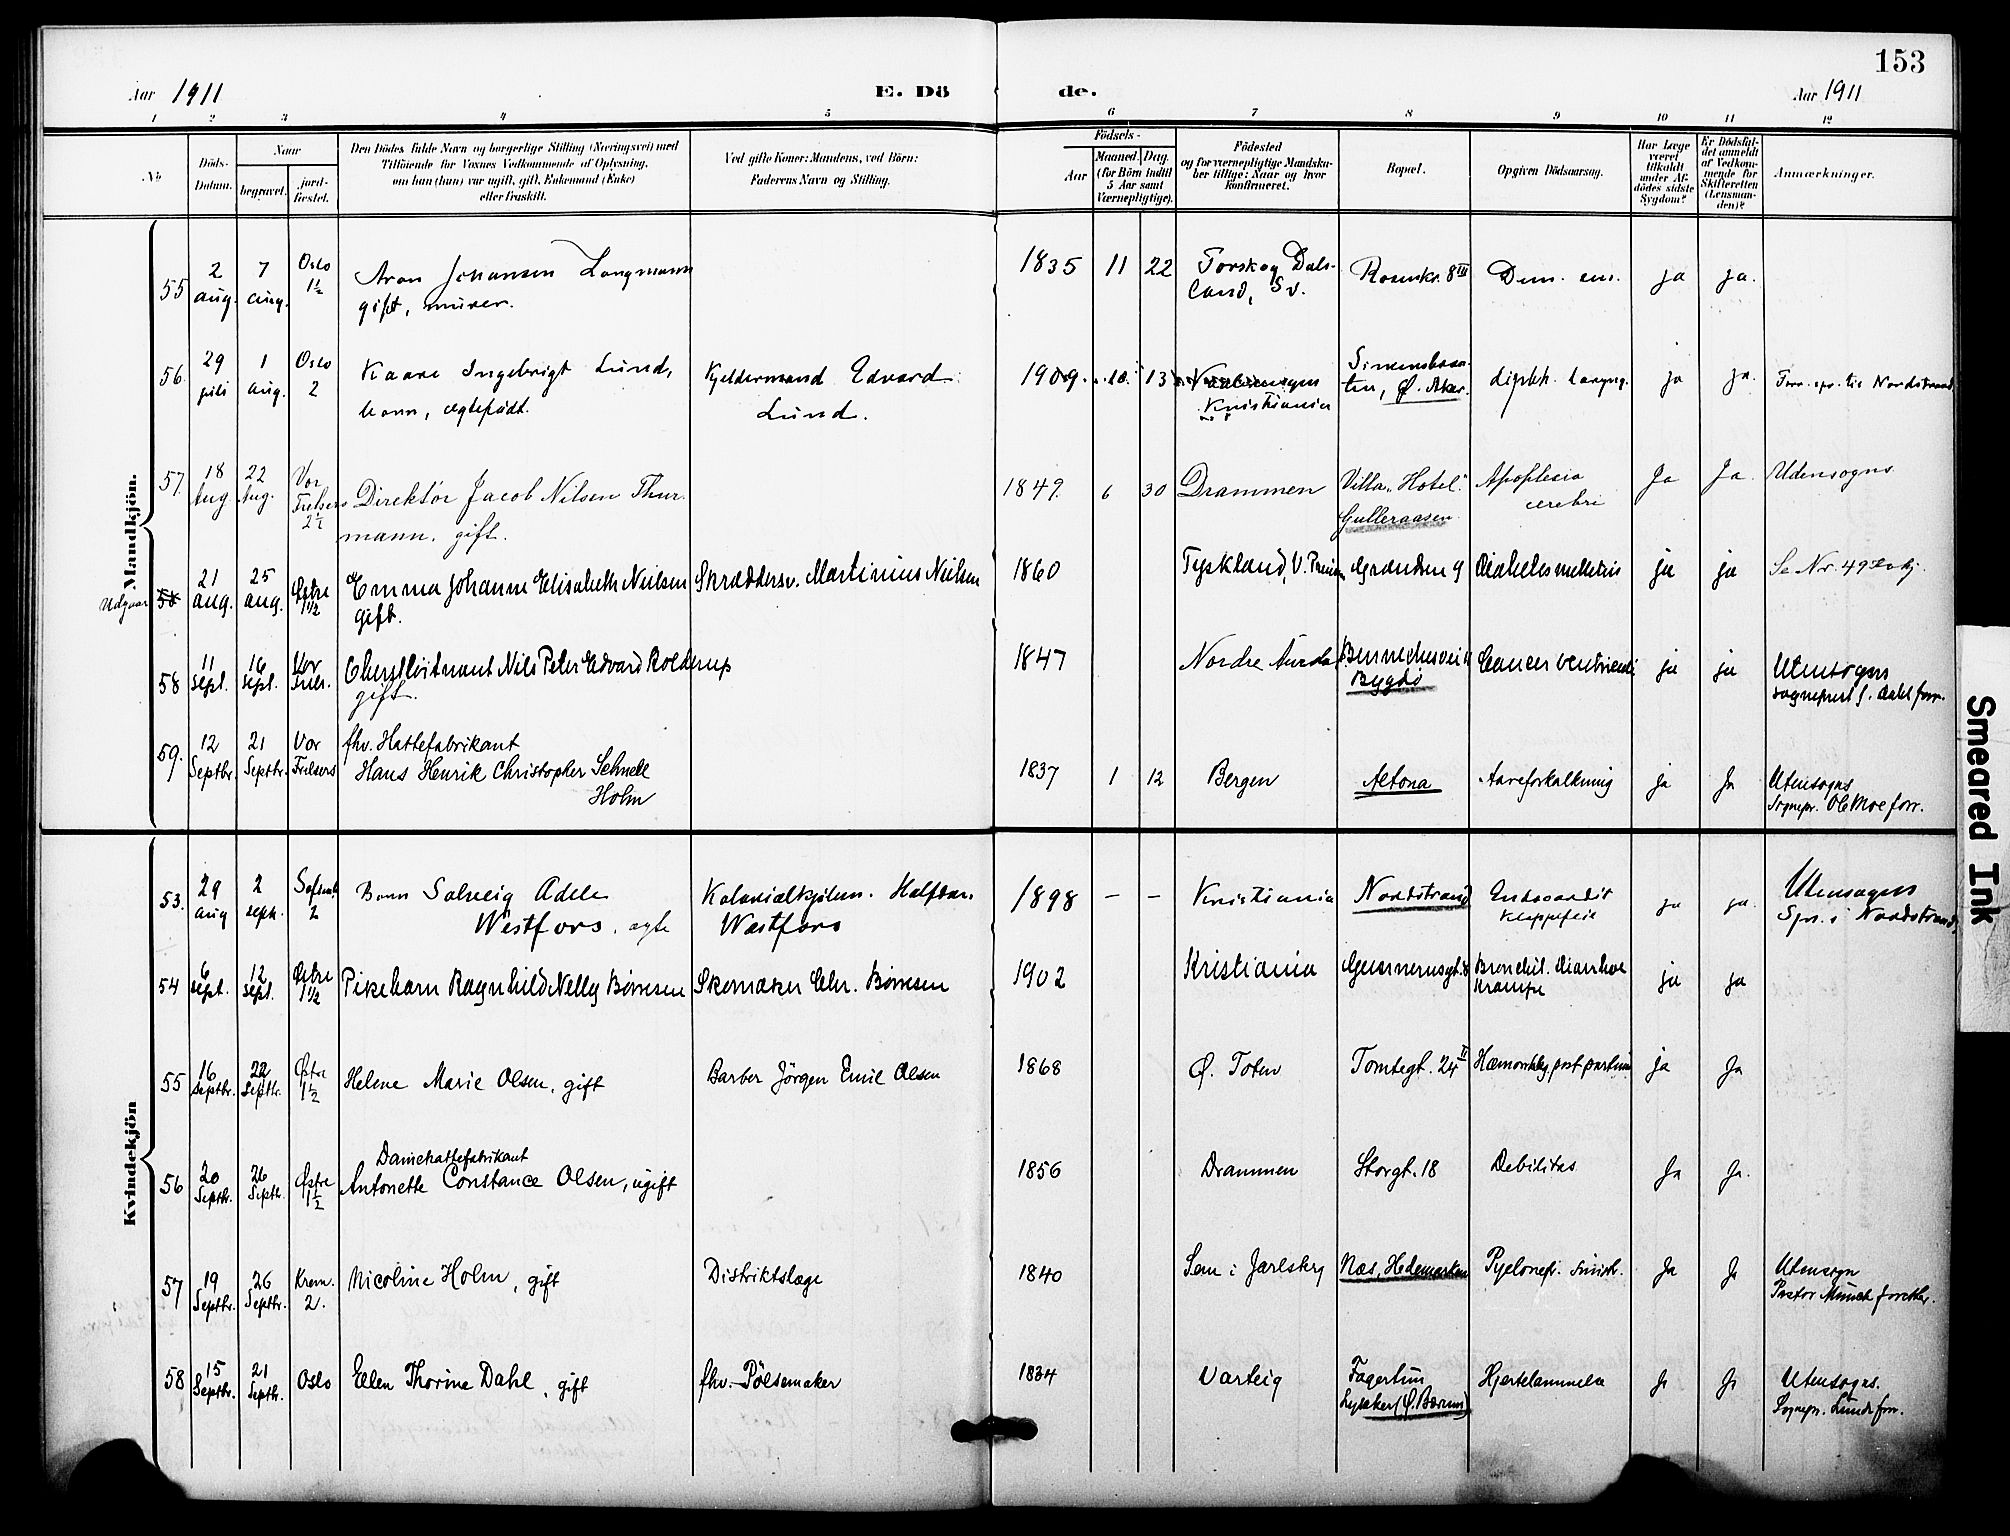 153
Aar 1911
E. Dö
de.
Aar 1911
1 2 3 4 5 6 7 8 9 10 11 12
No
Döds-
Datum.
Naar
begravet.
jord-
fæstet.
Den Dödes fulde Navn og borgerlige Stilling (Næringsvei) med
Tilföiende for Voxnes Vedkommende af Oplysning,
om han (hun) var ugift, gift, Enkemand (Enke)
eller fraskilt.
Ved gifte Koner: Mandens, ved Börn:
Faderens Navn og Stilling.
Födsels-
Aar
Maaned. Dag.
(for Börn indtil
5 Aar samt
Værnepligtige).
Födested
og for værnepligtige Mandska-
ber tillige: Naar og hvor
konfirmeret.
Bopæl.
Opgiven Dödsaarsag.
Har Læge
været
tilkaldt
under Af-
dödes sidste
Sygdom?
Er Dödsfal-
det anmeldt
af Vedkom-
mende for
Skifteretten
(Lensman-
den)?
Anmærkninger.
Mandkjön.
55 2 aug. 7 aug. Oslo 1½ Aron Johansen Langmann
gift, murer.
1835 11 22 Torskog Dals-
land, Sv. Rosenkr. 8 III Dem. sen. ja ja.
56 29 juli 1 aug. Oslo 2 Kaare Ingebrigt Lund,
barn, ægtefødt.
Kjeldermand Edvard
Lund.
1909. 10. 13
Kristiania
Simensbraa-
ten, Ø. Aker. diphth. laryng. ja ja. Forr. spr. til Nordstrand
57. 18 Aug. 22 Aug. Vor Frelsers 2½ Direktør Jacob Nilsen Thur-
mann. gift.
1849. 6 30 Drammen Villa "Hotel".
Gulleraasen Apoplexia
cerebri Ja Ja. Udensogns
Udgaar 58 21 aug. 25 aug. Østre 1½ Emma Johanne Elisabeth Nielsen
gift.
Skræddersv. Martinius Nielsen
1860 Tyskland, V. Grændsen 9 Diabetes mellitus ja ja Se Nr. 49
58 11 sept. 16 sept. Vor Frels. Oberstløitnant Nils Peter Edvard Rolderup
gift.
1847 Nordre Aurdal
Bygdø Cancer ventriculi ja ja Utensogns
sognepræst forr.
59. 12 Septbr. 21 Septbr. Vor Frelsers fhv. Hattefabrikant
Hans Henrik Christopher Schnell
Holm
1837 1 12 Bergen Altona Aareforkalkning ja Ja Utensogns
Sognepr. Ole Moe forr.
Kvindekjön
53. 29 aug 2 sept. 2 Barn Solveig Adele
Westfors, ægte
Kolonialkjøbm. Halfdan
Westfors
1898 - - Kristiania Nordstrand Endocardit
Klappefeil ja ja. Utensogns
Spr. i Nordstrand.
54 6 sept. 12 sept. Østre 1½ Pikebarn Ragnhild Nelly Børresen
Skomaker Chr. Børresen
1902 Kristiania Gunnerusgt. Bronchit. diarrhoe
Krampe ja ja
55 16 Septbr. 22 Septbr. Østre 1½ Helene Marie Olsen, gift
Barber Jörgen Emil Olsen
1868 Ø. Toten Tomtegt. 24 II Hæmorrhag. post partum ja Ja
56 20 Septbr. 26 Septbr. Østre 1½ Damehattefabrikant
Antonette Constance Olsen, ugift
1856 Drammen Storgt. 18 Debilitas Ja Ja.
57 19 Septbr. 26 Septbr. Krem. 2. Nicoline Holm, gift
Distriktslæge
1840 Sem i Jarlsberg Næs, Hedemarken Pyelonefr. Ja Ja Utensogn
Pastor Münch forretter.
58 15 Septbr. 21 Septbr. Oslo Ellen Thorine Dahl, gift
fhv. Pölsemaker
1834 Varteig Fagertun
Lysaker (Ø. Bærum) Hjertelammelse Ja Ja Utensogns.
Sognepr. Lunde forr.
Smeared Ink